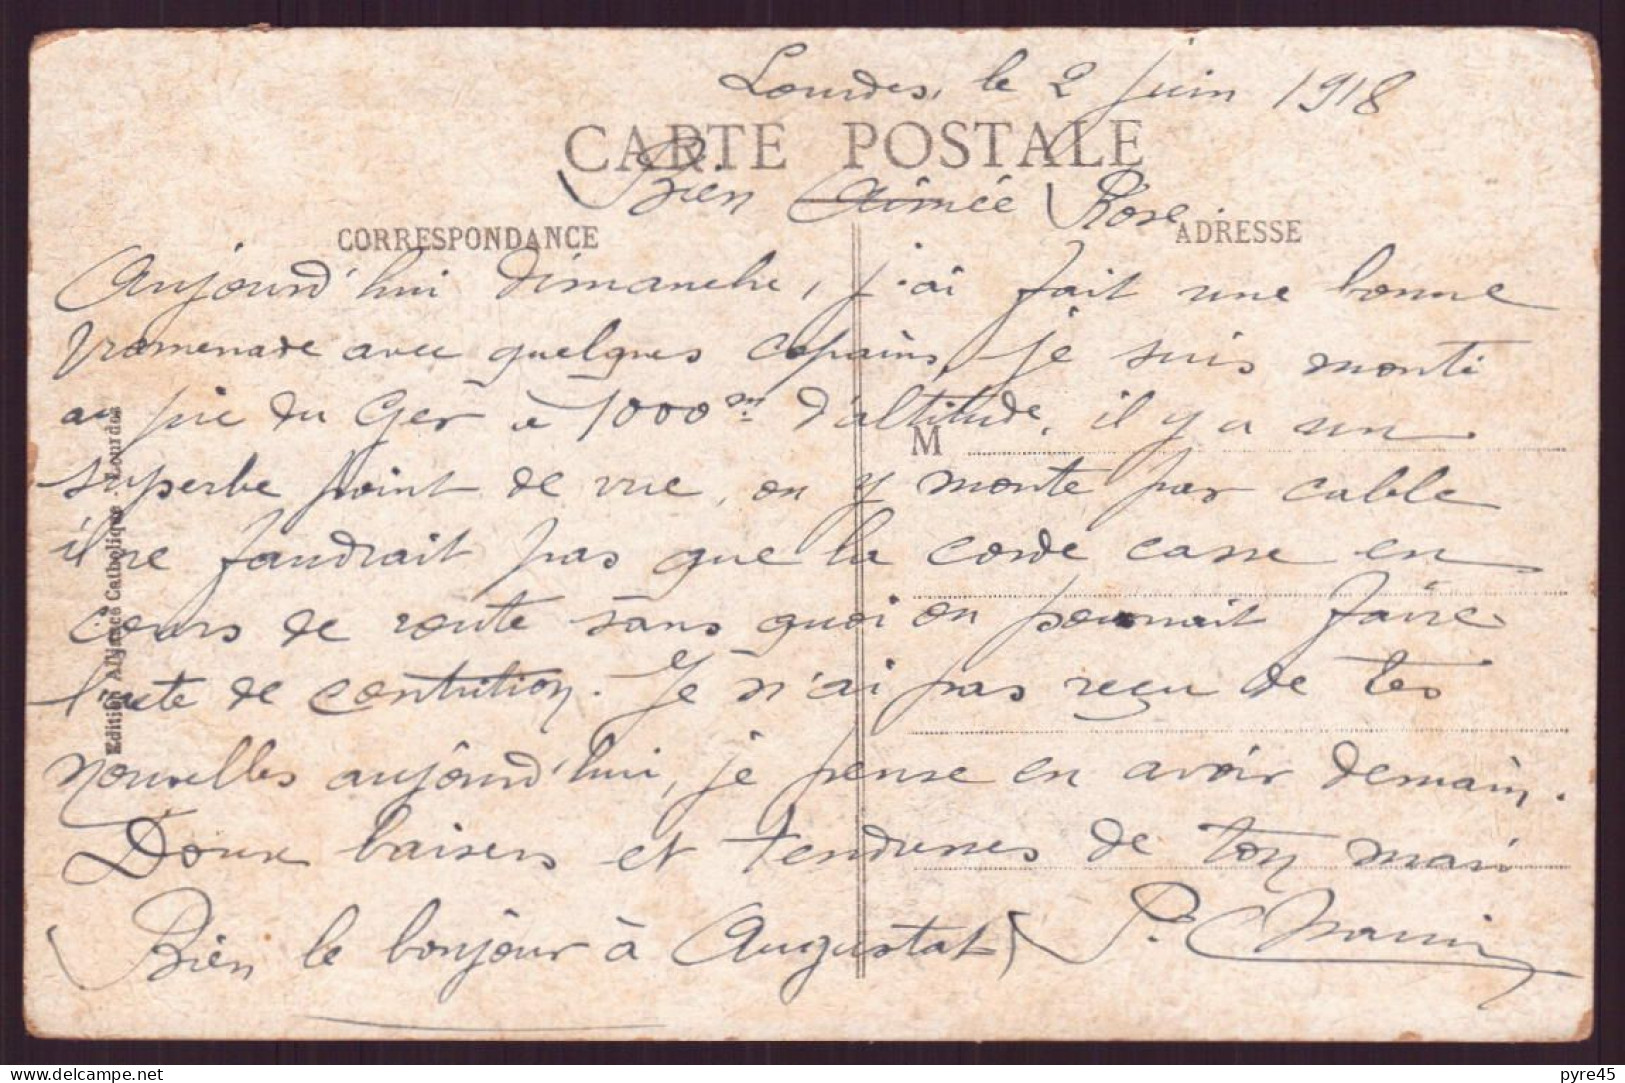 Lourdes, le 2 juin 1918
CARTE POSTALE
Bien Aimée Rose.
CORRESPONDANCE
ADRESSE
Aujourd'hui dimanche, j'ai fait une bonne
promenade avec quelques copains, je suis monté
au pic du Ger à 1000m d'altitude, il y a un
M
superbe point de vue, on y monte par cable
il ne faudrait pas que la corde casse en
cours de route sans quoi on pourrait faire
l'acte de contrition. Je n'ai pas reçu de tes
nouvelles aujourd'hui, je pense en avoir demain.
Doux baisers et tendresses de ton mari
Bien le bonjour à Augusta
P.
Edition Alliance Catholique - Lourdes
pyre45